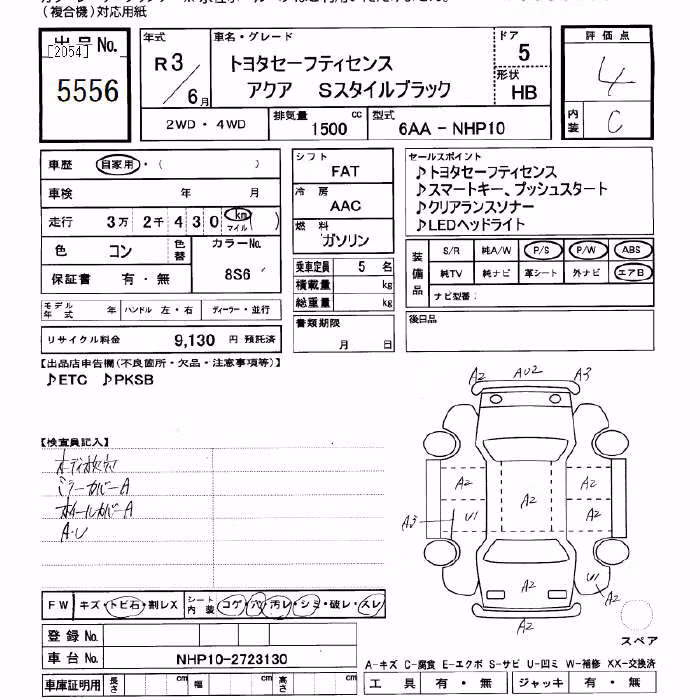 （複合機）対応用紙
出品No.
［2054］
5556
年式 R 3／6月
車名・グレード
トヨタセーフティセンス
アクア Sスタイルブラック
ドア 5
形状 HB
評価点 4
内装 C
2WD・4WD
排気量 1500 cc
型式 6AA－NHP10
車歴 自家用・（ ）
車検 年 月
走行 3万 2千 4 3 0 km マイル（ ）
色 コン
色替
カラーNo. 8S6
保証書 有・無
シフト FAT
冷房 AAC
燃料 ガソリン
乗車定員 5 名
積載量 kg
総重量 kg
セールスポイント
♪トヨタセーフティセンス
♪スマートキー、プッシュスタート
♪クリアランスソナー
♪LEDヘッドライト
装備品
S/R 純A/W P/S P/W ABS
純TV 純ナビ 革シート 外ナビ エアB
ナビ型番：
モデル年式 年 ハンドル 左・右 ディーラー・並行
リサイクル料金 9,130 円 預託済
書類期限 月 日
後日品
【出品店申告欄(不良箇所・欠品・注意事項等)】
♪ETC ♪PKSB
【検査員記入】
ミラーカバーA
ホイールカバーA
A・U
A2 A02 A3
A2 A2 A2
A3 U1 A2 A2
A2 U1 A2
A2
スペア
FW キズ・トビ石・割レX
シート内装 コゲ・穴・汚レ・シミ・破レ・スレ
登録No.
車台No. NHP10-2723130
車庫証明用 長さ cm 幅 cm 高さ cm
A-キズ C-腐食 E-エクボ S-サビ U-凹ミ W-補修 XX-交換済
工具 有・無 ジャッキ 有・無